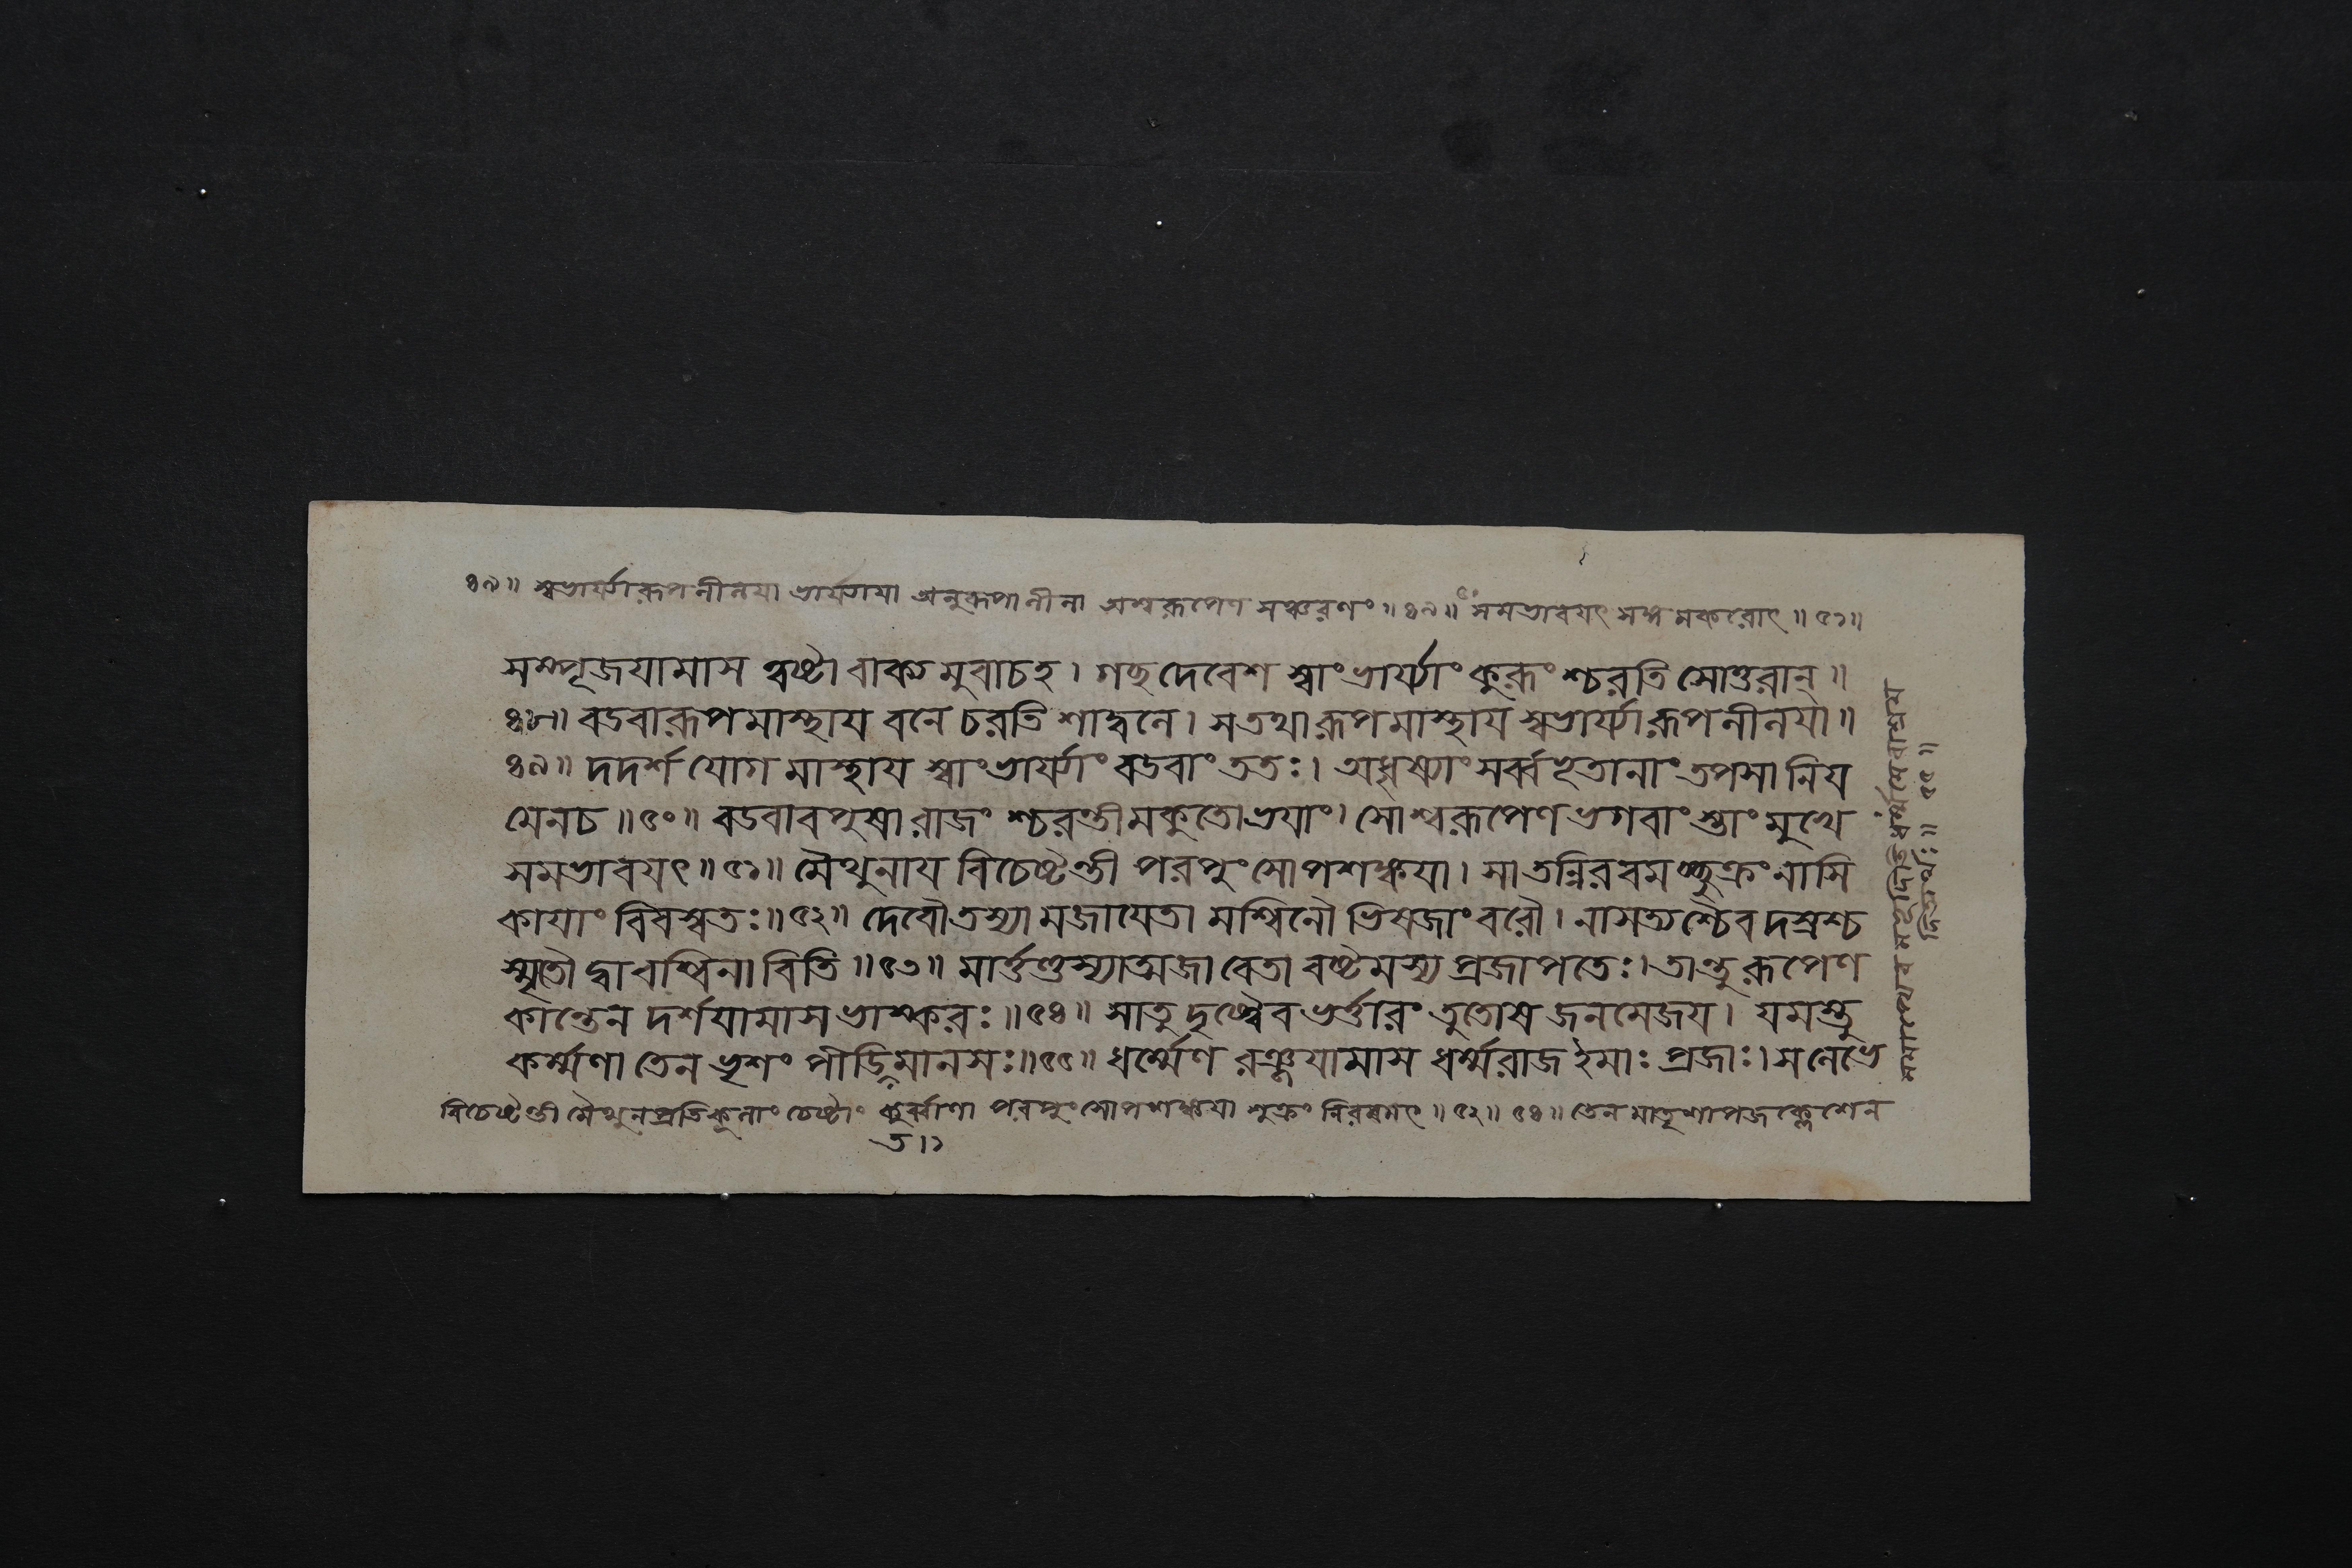 ৪৯॥ স্বভার্য্যারূপনীনয়া ভার্য্যায়া অনুরূপানীনা অশ্বরূপেণ সঞ্চরণং॥৪৯॥ সমভাবয়ৎ সঙ্গমকরোৎ॥৫১॥
সম্পূজয়ামাস ত্বষ্টা বাক্য মুবাচহ। গচ্ছ দেবেশ স্বাং ভার্য্যাং কুরূং শ্চরতি সোত্তরান্॥
৪৮॥ বডবারূপমাস্থায় বনে চরতি শাদ্বলে। সতথা রূপমাস্থায় স্বভার্য্যারূপনীনয়া॥
৪৯॥ দদর্শ যোগ মাস্থায় স্বাং ভার্য্যাং বডবাং ততঃ। অধৃষ্যাং সর্ব্বভূতানাং তপসা নিয়
মেনচ॥৫০॥ বডবাবপুষা রাজং শ্চরন্তীমকুতোভয়াং। সোশ্বরূপেণ ভগবাং স্তাং মুখে
সমভাবয়ৎ॥৫১॥ মৈথুনায় বিচেষ্টন্তী পরপুংসোপশঙ্কয়া। সা তন্নিরবমচ্ছুক্রং নাসি
কায়াং বিবস্বতঃ॥৫২॥ দেবৌ তস্যা মজায়েতা মশ্বিনৌ ভিষজাং বরৌ। নাসত্যশ্চৈব দস্রশ্চ
স্মৃতৌ দ্বাবশ্বিনা বিতি॥৫৩॥ মার্ত্তণ্ডস্যাত্মজা বেতা বষ্টমস্য প্রজাপতেঃ। তান্তু রূপেণ
কান্তেন দর্শয়ামাস ভাস্করঃ॥৫৪॥ সাতু দৃষ্ট্বৈব ভর্ত্তারং তুতোষ জনমেজয়। যমস্তু
কর্ম্মণা তেন ভৃশং পীড়িমানসঃ॥৫৫॥ ধর্ম্মেণ রঞ্জয়ামাস ধর্ম্মরাজ ইমাঃ প্রজাঃ। সনেভে
বিচেষ্টন্তী মৈথুনপ্রতিকূলাং চেষ্টাং কুর্ব্বাণা পরপুংসোপশঙ্কয়া শুক্রং নিরবমৎ॥৫২॥ ৫৪॥ তেন মাতৃশাপজক্লেশেন
ত।১